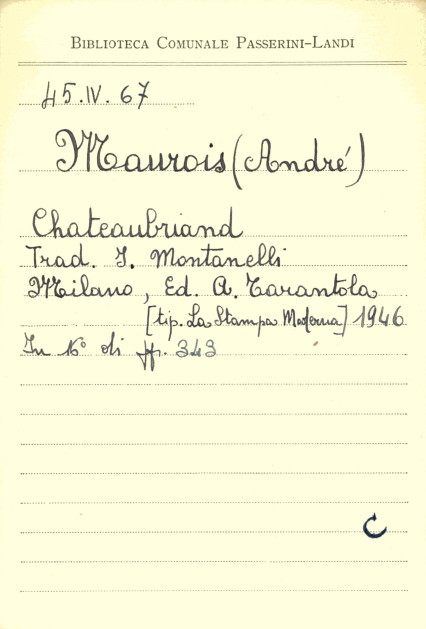 BIBLIOTECA COMUNALE PASSERINI-LANDI
45.IV.67
Maurois (André)
Chateaubriand
Trad. I. Montanelli
Milano, Ed. A. Tarantola
[tip. La Stampa Moderna] 1946
In 16° di pp. 343
C